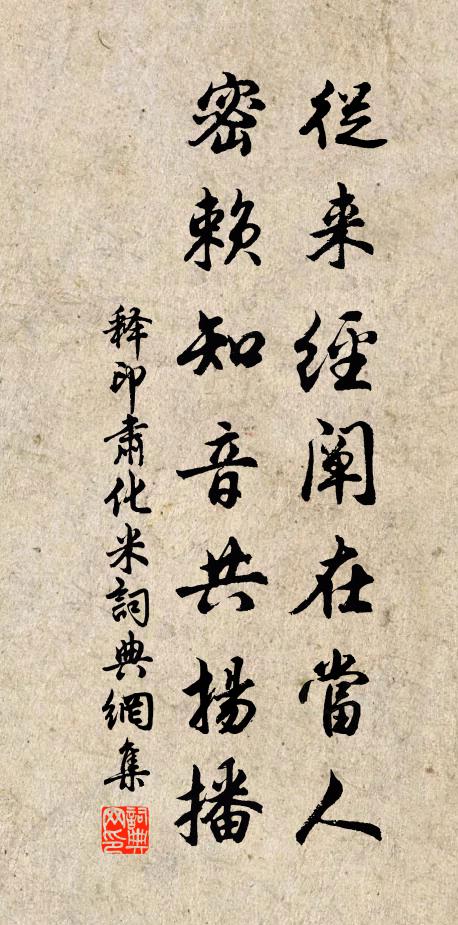 從来經闡在當人
密赖知音共揚播
释印肅化米詞典網集
詞典网印